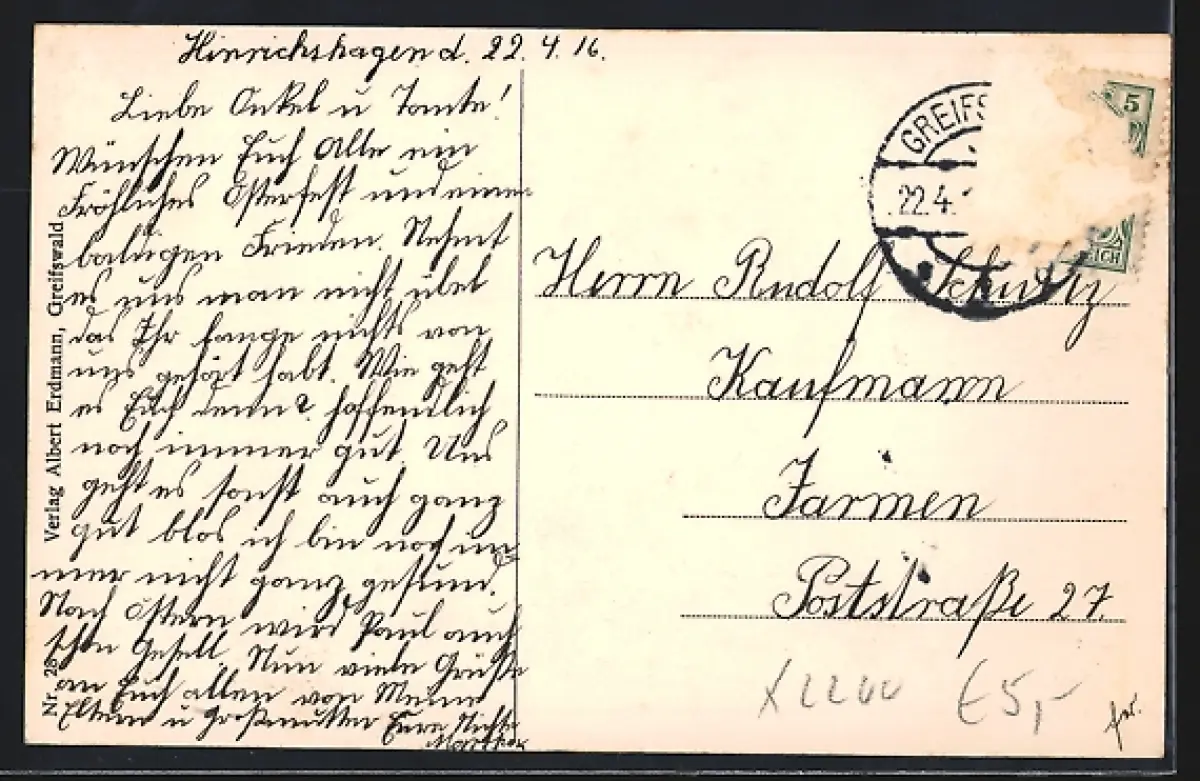 Hinrichshagen d. 22. 4. 16.
Liebe Onkel u Tante!
Wünschen Euch Alle ein
Fröhliches Osterfest und einen
baldigen Frieden. Nehmt
es uns man nicht übel
das Ihr lange nichts von
uns gehört habt. Wie geht
es Euch denn? hoffendlich
noch immer gut. Uns
geht es sonst auch ganz
gut blos ich bin noch im
mer nicht ganz gesund.
Nach Ostern wird Paul auch
schon Gesell. Nun viele Grüße
an Euch allen von Meine
Eltern u Großmutter Eure Nichte
Verlag Albert Erdmann, Greifswald
Nr. 28
GREIFS
22.4.
5
ICH
Herrn Rudolf Schultz
Kaufmann
Jarmen
Poststraße 27.
€5,-